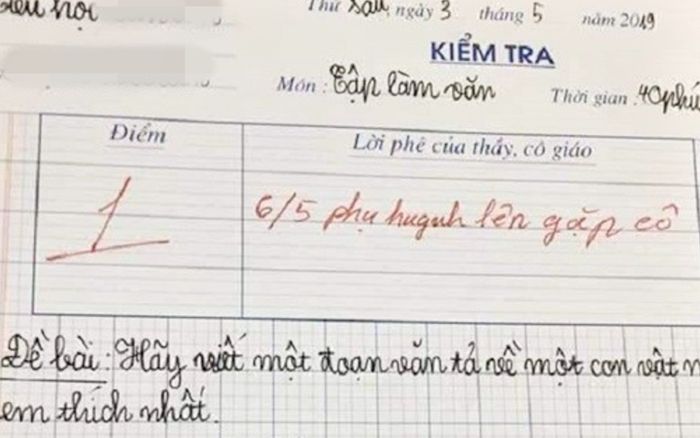 Tiểu học
Thứ sáu, ngày 3 tháng 5 năm 2019
KIỂM TRA
Môn: Tập làm văn Thời gian: 40 phú
Điểm
Lời phê của thầy, cô giáo
1
6/5 phụ huynh lên gặp cô
Đề bài: Hãy viết một đoạn văn tả về một con vật m
em thích nhất.